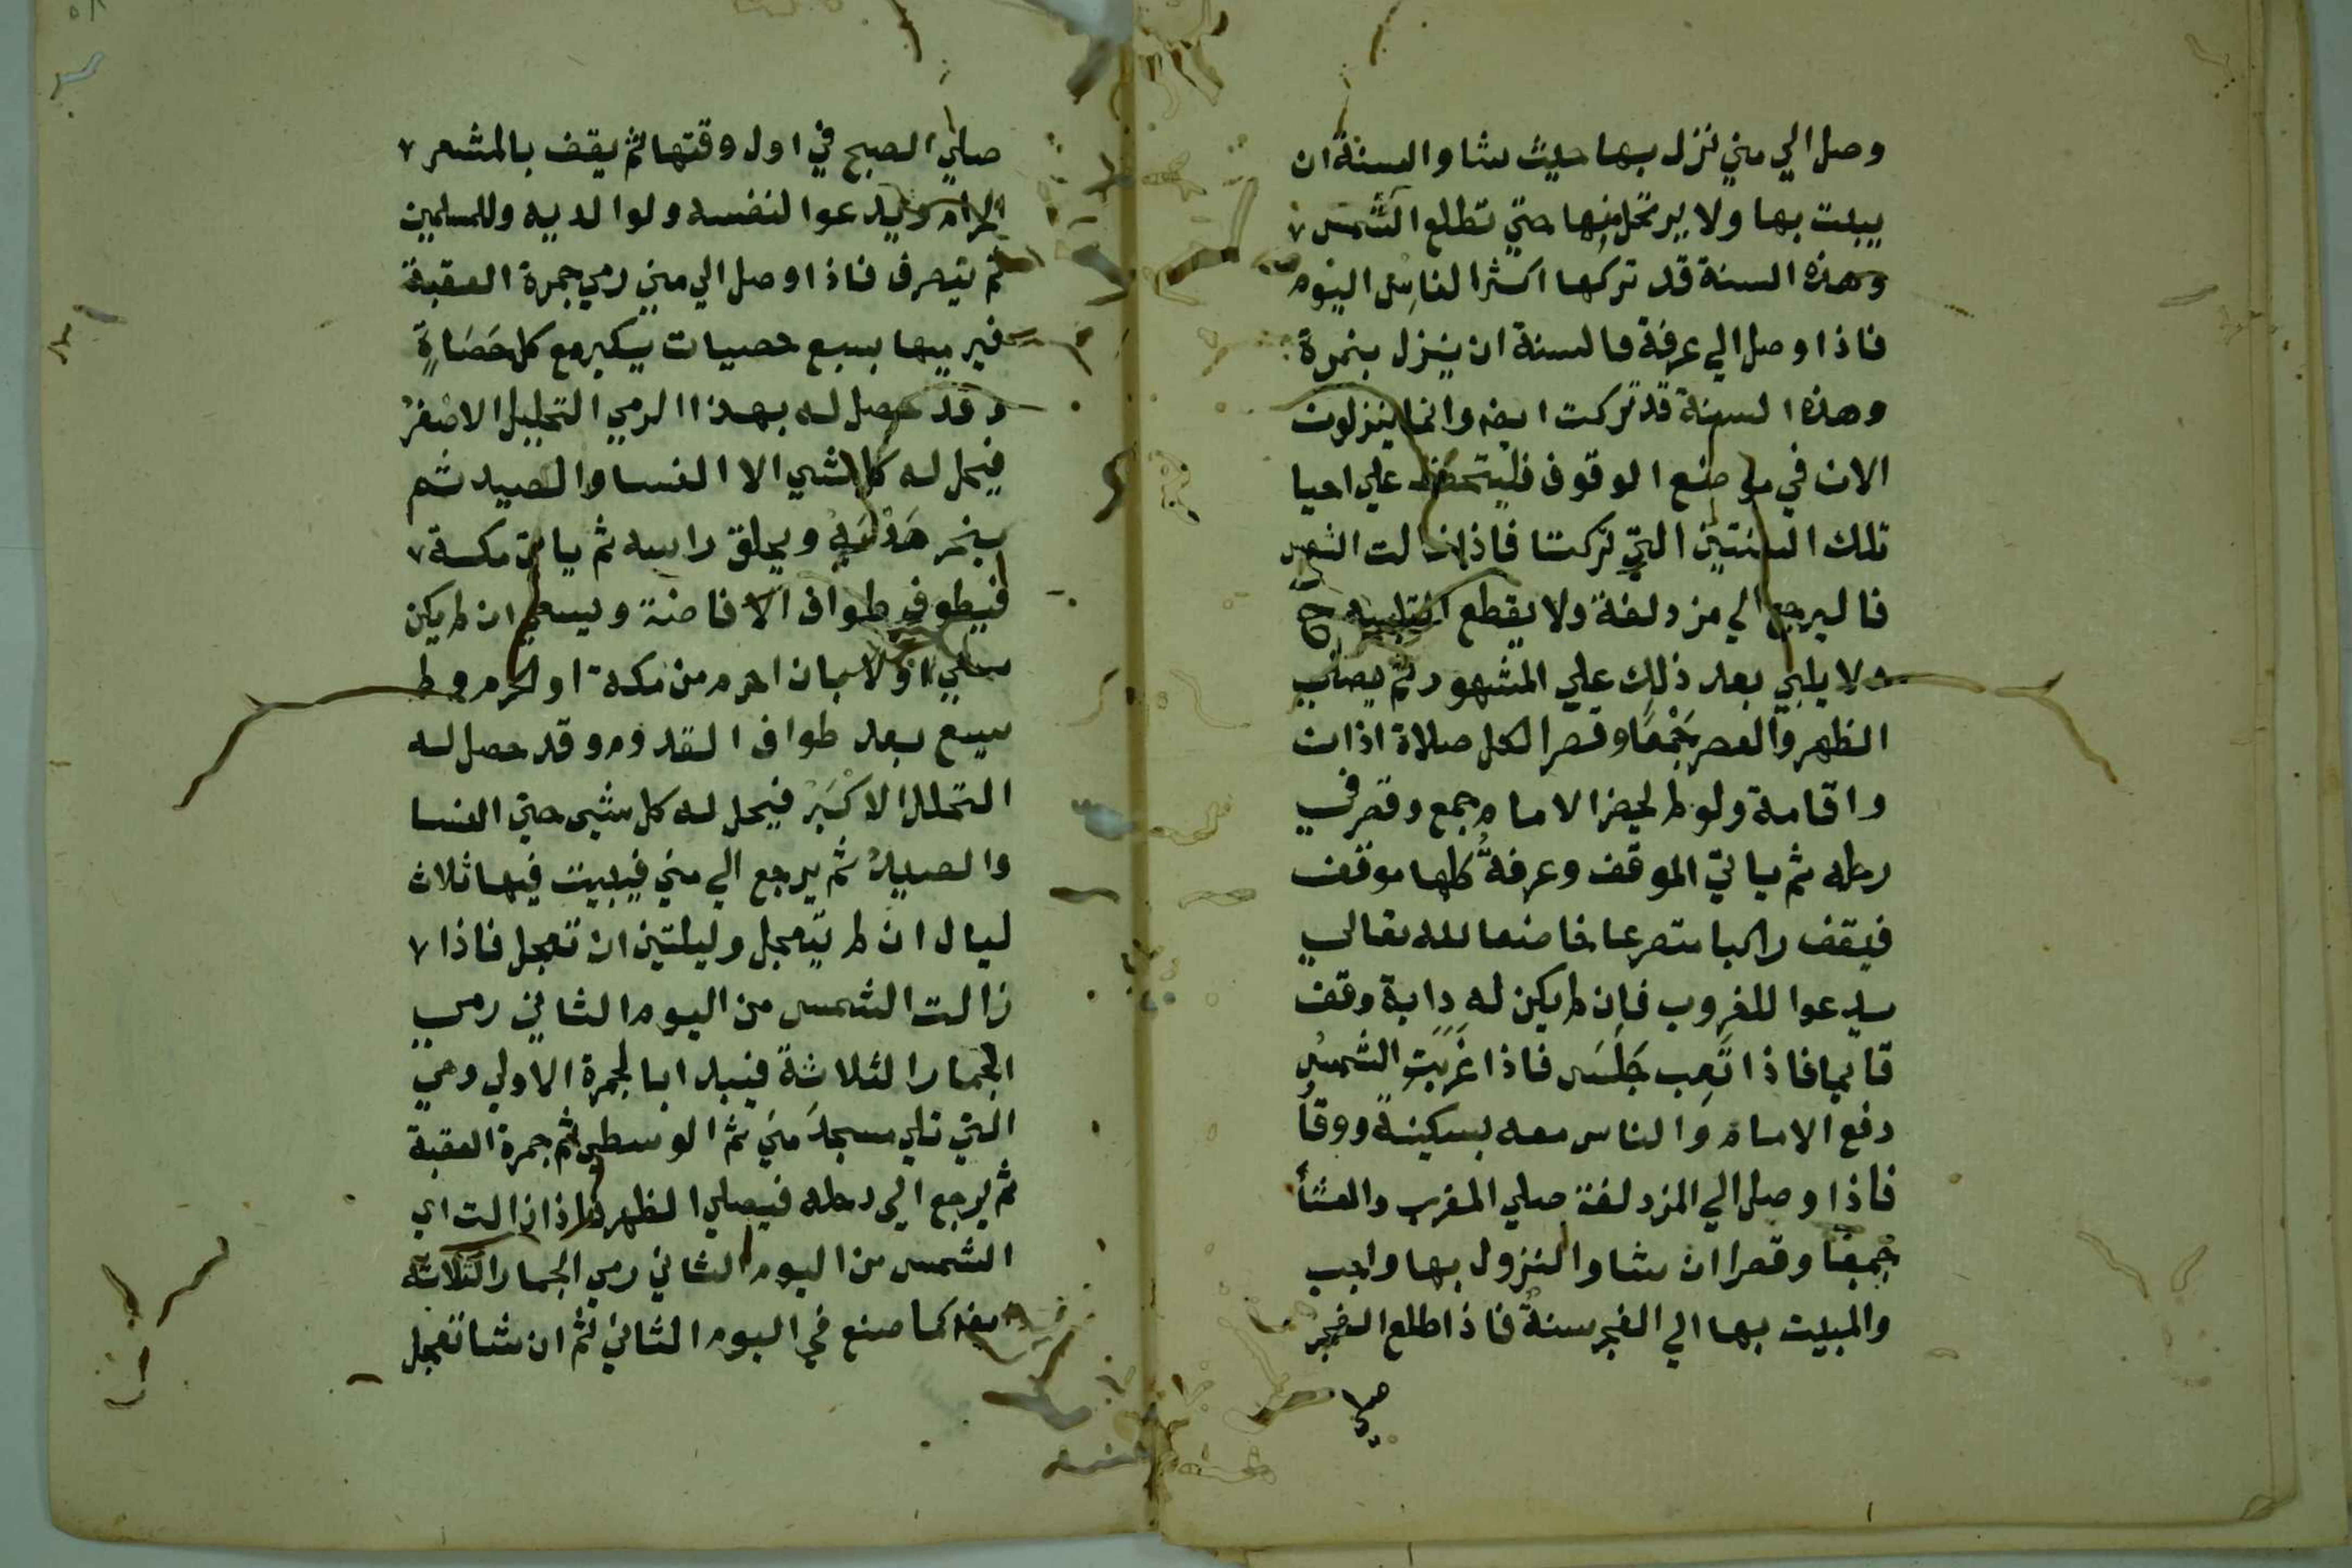 وصل الي مني نزل بها حيث شا والسنة ان
يبيت بها ولا يرتحل منها حتي تطلع الشمس
وهذه السنة قد تركها اكثر الناس اليوم
فاذا وصل الي عرفة فالسنة ان ينزل بنمرة
وهذه السنة قد تركت ايضا وانما ينزلون
الان في موضع الوقوف فليتحفظ علي احيا
تلك السنتين التي تركتا فاذا زالت الشمس
فاليرجع الي مزدلفة ولا يقطع التلبيه ح
ولا يلبي بعد ذلك علي المشهور ثم يصلي
الظهر والعصر جمعا وقصرا لكل صلاة اذان
واقامة ولو لم يحضر الامام جمع وقصر في
رحله ثم ياتي الموقف وعرفة كلها موقف
فيقف راكبا متضرعا خاضعا لله تعالي
يدعوا للغروب فان لم يكن له دابة وقف
قايما فاذا تعب جلس فاذا غربت الشمس
دفع الامام والناس معه بسكينة ووقا
فاذا وصل الي المزدلفة صلي المغرب والعشأ
جمعا وقصرا ان شا والنزول بها واجب
والمبيت بها الي الفجر سنة فاذا طلع الفجر
صلي
صلي الصبح في اول وقتها ثم يقف بالمشعر
الحرام ويدعوا لنفسه ولوالديه وللمسلمين
ثم ينصرف فاذا وصل الي مني رمي جمرة العقبة
فيرميها بسبع حصيات يكبر مع كل حصاة
وقد حصل له بهذا الرمي التحليل الاصغر
فيحل له كل شي الا النسا والصيد ثم
ينحر هديه ويحلق راسه ثم ياتي مكة
فيطوف طواف الافاضة ويسعي ان لم يكن
سعي اولا بان احرم من مكة او الحرم ولم
يسع بعد طواف القدوم وقد حصل له
التحلل الاكبر فيحل له كل شي حتي النسا
والصيد ثم يرجع الي مني فيبيت فيها ثلاث
ليال ان لم يتعجل وليلتين ان تعجل فاذا
زالت الشمس من اليوم الثاني رمي
الجمار الثلاثة فيبدا بالجمرة الاولي وهي
التي تلي مسجد مني ثم الوسطي ثم جمرة العقبة
ثم يرجع الي رحله فيصلي الظهر فاذا زالت اي
الشمس من اليوم الثاني رمي الجمار الثلاثة
ايضا كما صنع في اليوم الثاني ثم ان شا تعجل